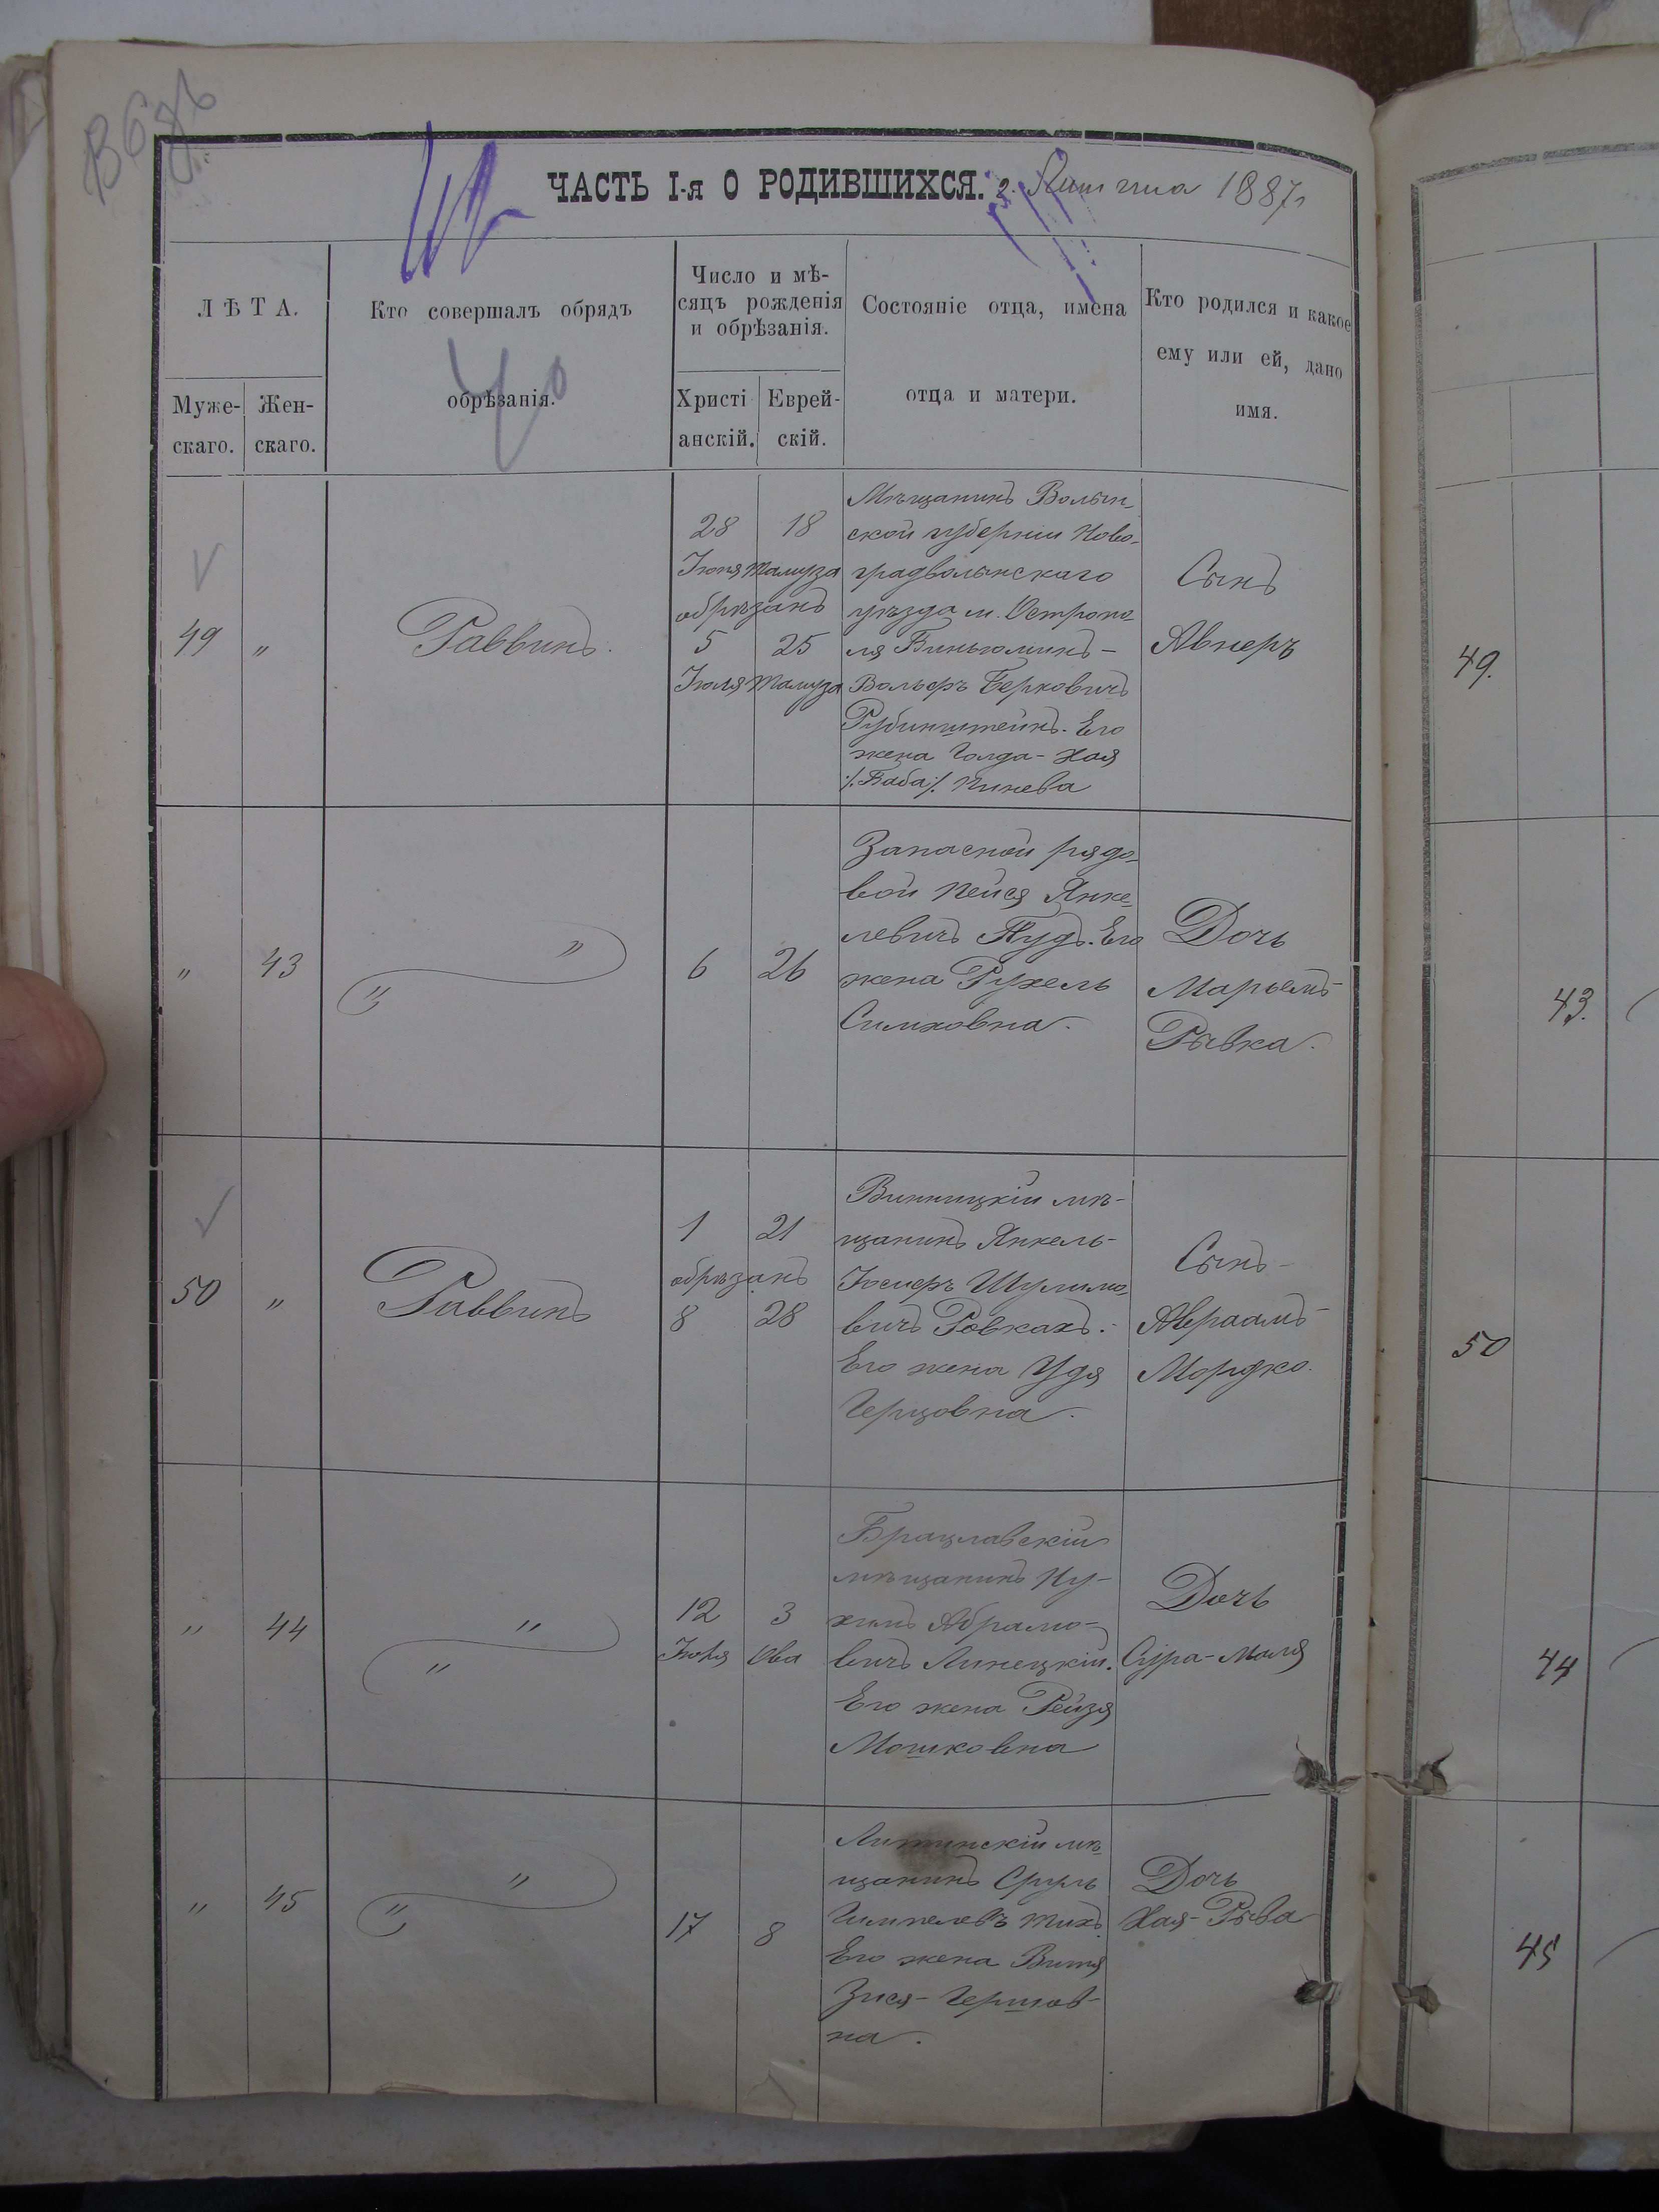 ЧАСТЬ I-я О РОДИВШИХСЯ. г. Литина 1887г
ЛѢТА.
Муже-
скаго.
Жен-
скаго.
Кто совершалъ обрядъ
обрѣзанія.
Число и мѣ-
сяцъ рожденія
и обрѣзанія.
Христі
анскій.
Еврей-
скій.
Состояніе отца, имена
отца и матери.
Кто родился и какое
ему или ей, дано
имя.
49
"
Раввинъ.
28 18
Іюня Тамуза
обрѣзанъ
5 25
Іюля Тамуза
Мѣщанинъ Волын-
ской губерніи Ново-
градволынскаго
уѣзда м. Остропо-
ля Биньюминъ-
Вольфъ Берковичъ
Рубинштейнъ. Его
жена Голда-Хая
/.Баба/. Пинева
Сынъ
Авнеръ
49.
"
43
"
"
6 26
Запасной рядо-
вой Пейся Янке-
левичъ Пудъ. Его
жена Рухель
Симховна.
Дочь
Марьемъ-
Рывка.
43.
50
"
Раввинъ
1 21
обрѣзанъ
8 28
Винницкій мѣ-
щанинъ Янкель-
Іосифъ Шулимо-
вичъ Ровкахъ.
Его жена Удя
Герцовна.
Сынъ-
Авраамъ-
Мордко.
50
"
44
"
"
12 3
Іюля Ова
Брацлавскій
мѣщанинъ Ну-
химъ Абрамо-
вичъ Линецкій.
Его жена Рейзя
Мошковна
Дочь
Сура-Маля
44
"
45
"
"
17 8
Литинскій мѣ-
щанинъ Сруль
Гимпелевъ Тихъ.
Его жена Витя
Зися-Гершов-
на.
Дочь
Хая-Рыва
45